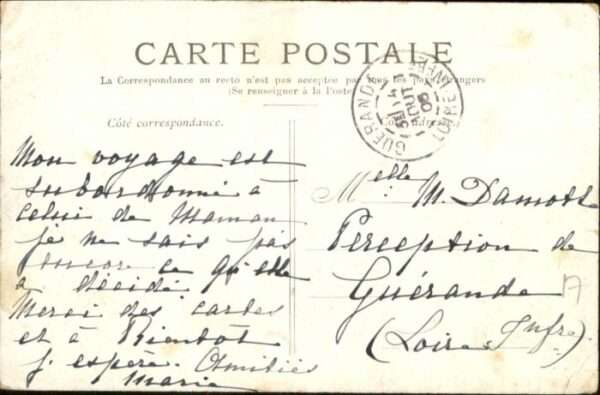 CARTE POSTALE
La Correspondance au recto n'est pas acceptée par tous les pays étrangers
(Se renseigner à la Poste)
Côté correspondance.
Mon voyage est
subordonné à
celui de Maman
je ne sais pas
encore ce qu'elle
a décidé
Merci des cartes
et à Bientôt
j. espère. Amitiés
Marie
GUÉRANDE
LOIRE INFRE
AOUT
08
Melle M. Damotte
Perception de
Guérande
(Loire Infre).